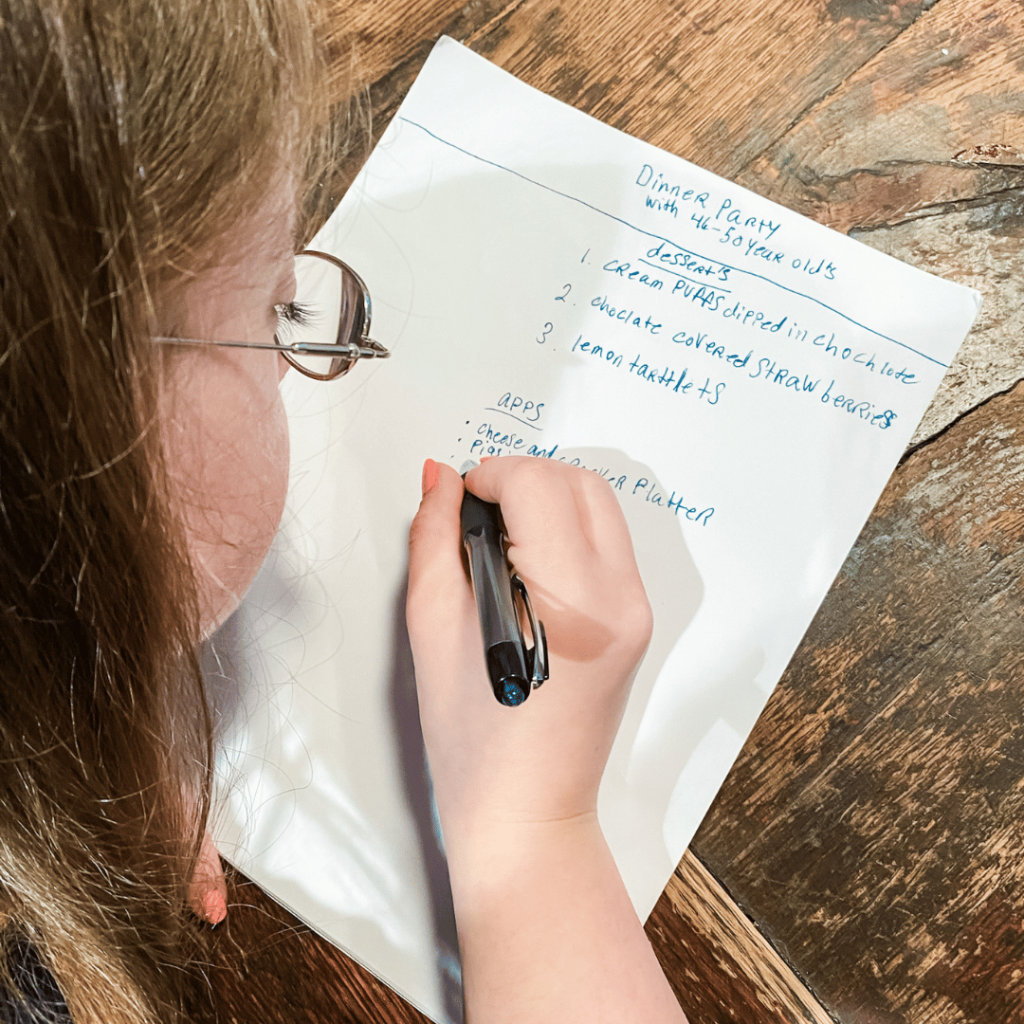 Dinner Party
with 46-50 year old's
desserts
1. cream puffs dipped in chochlote
2. choclate covered strawberries
3. lemon tarthlets
apps
• cheese and cracker platter
• pigs